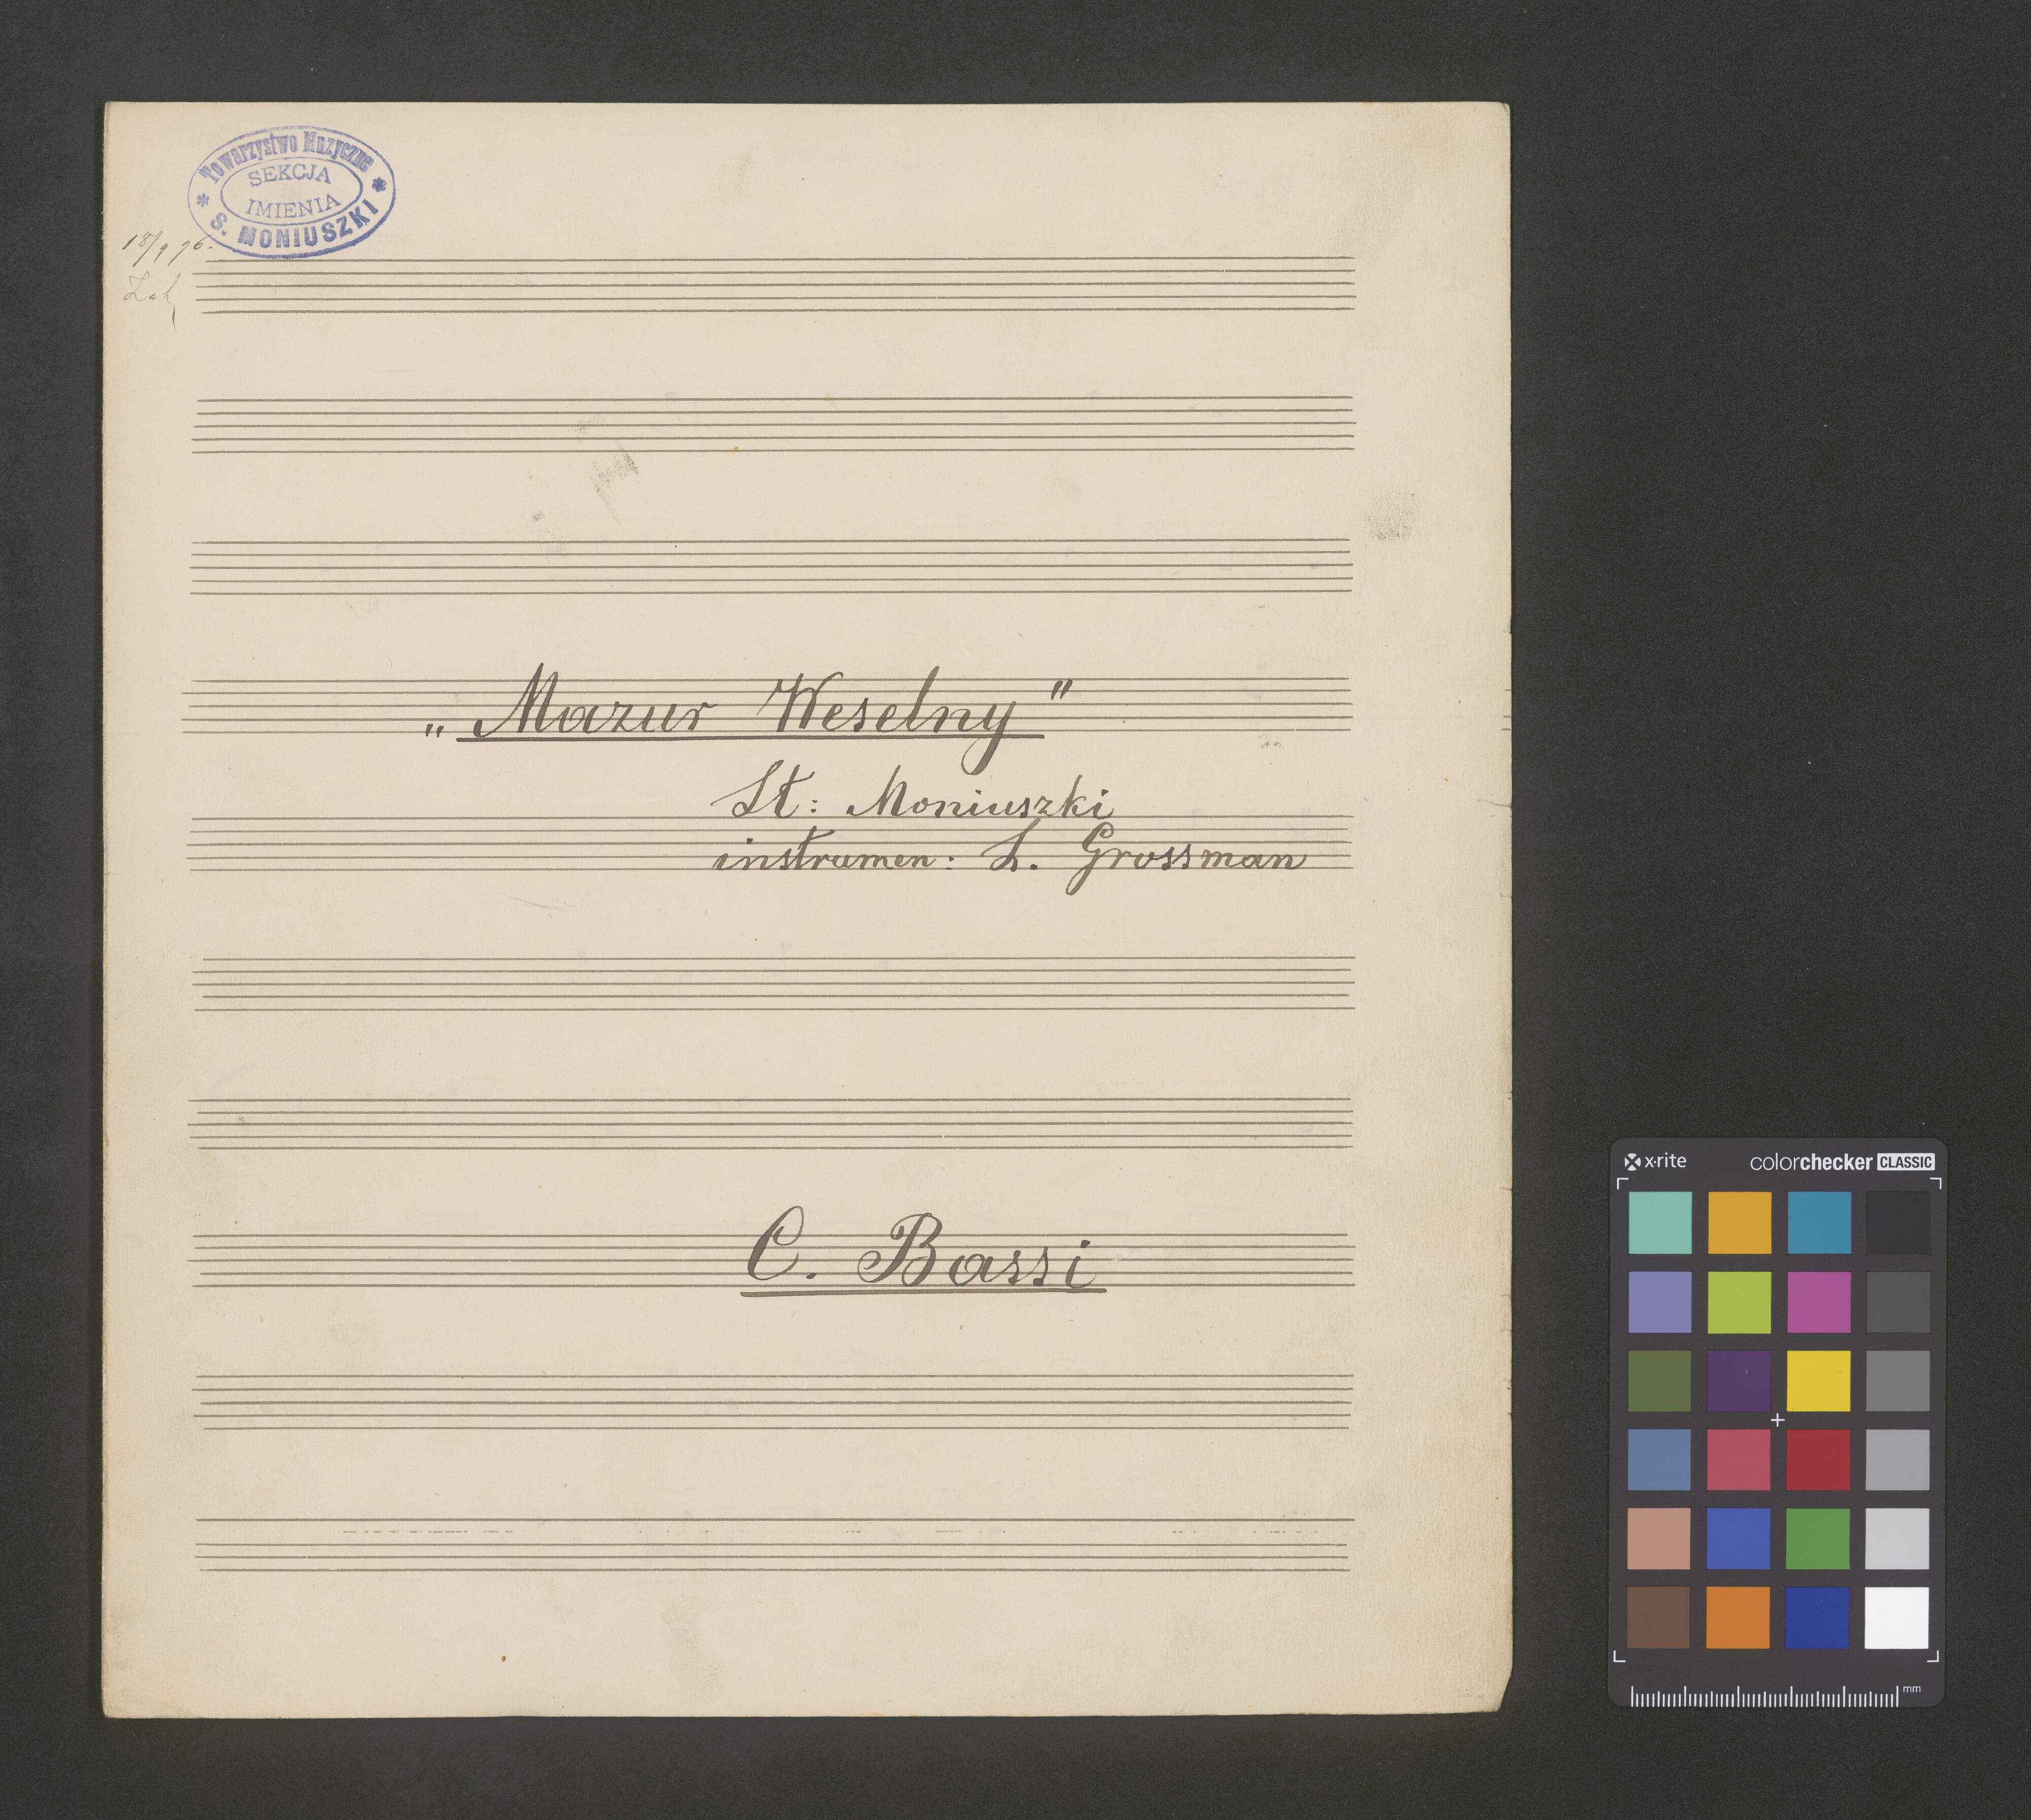 Towarzystwo Muzyczne
SEKCJA
IMIENIA
* S. MONIUSZKI *
18/9 96.
„Mazur Weselny"
St: Moniuszki
instrumen: L. Grossman
C. Bassi
x·rite colorchecker CLASSIC
mm